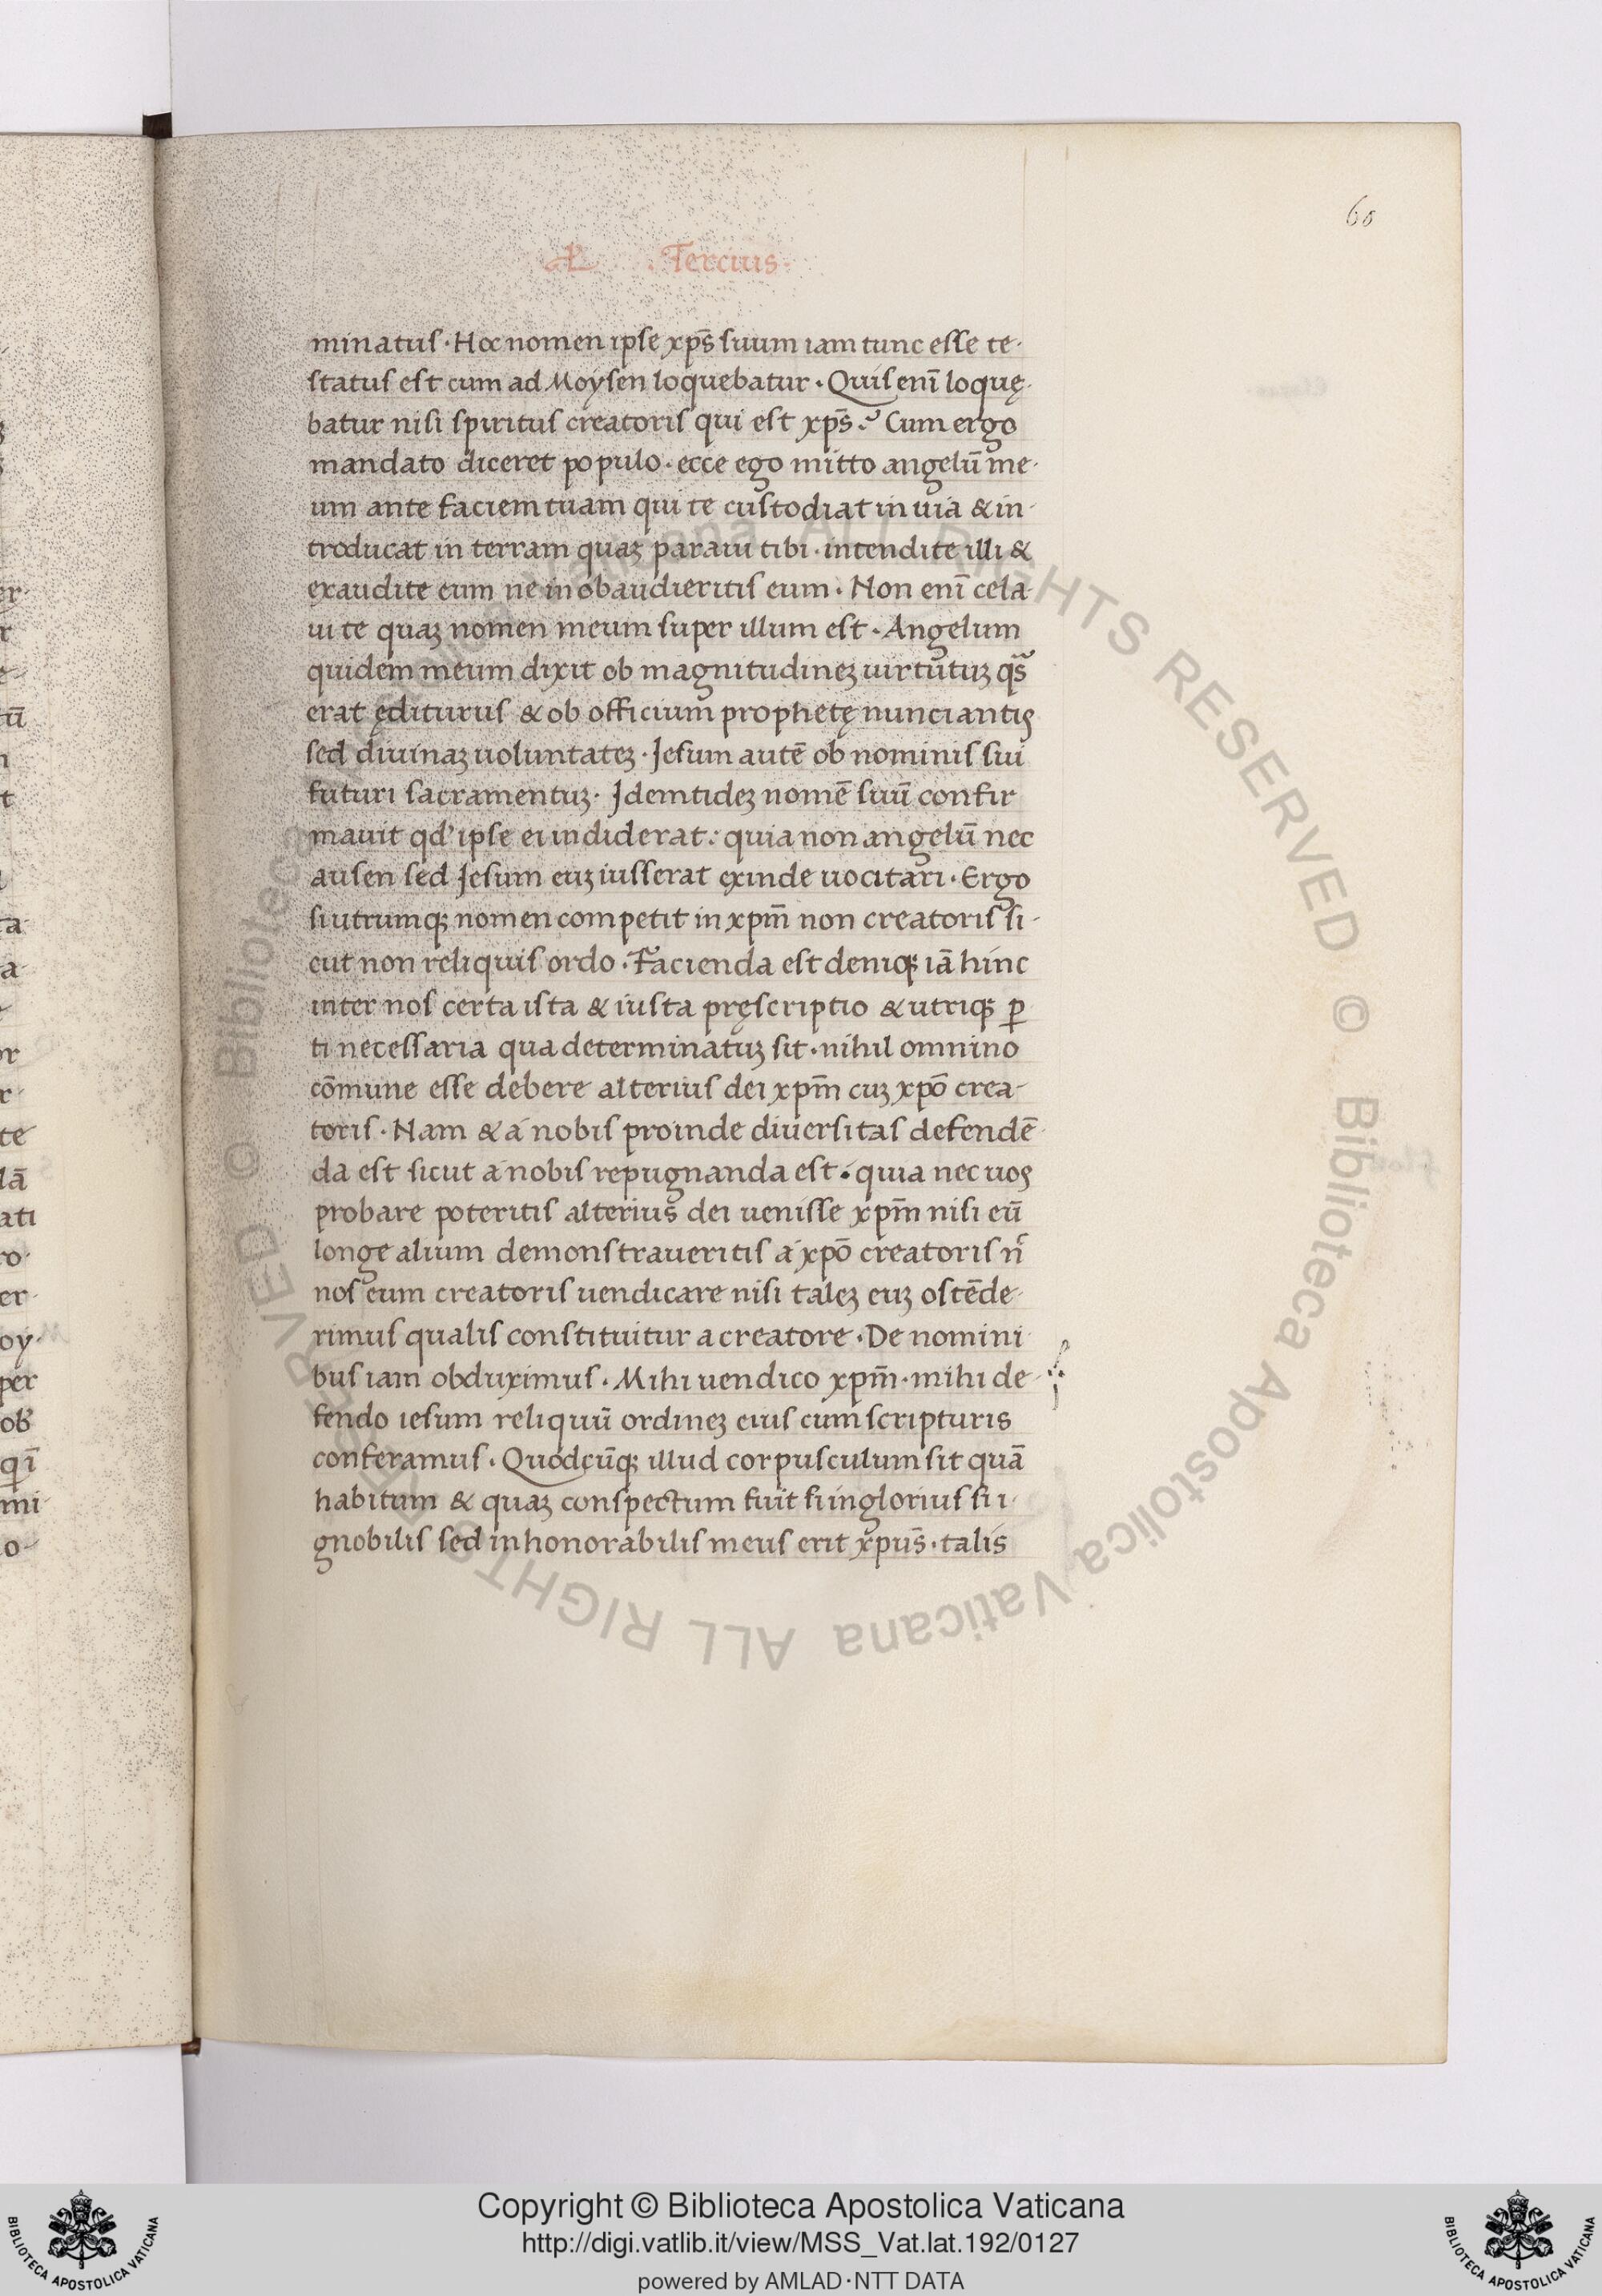 60
Tercius·
minatus · Hoc nomen ipse xp̄s suum iam tunc esse te-
status est cum ad Moysen loquebatur · Quis eni̅ loquę-
batur nisi spiritus creatoris qui est xp̄s ? Cum ergo
mandato diceret populo · ecce ego mitto angelu̅ me-
um ante faciem tuam qui te custodiat in uia & in-
troducat in terram quaꝫ paraui tibi · intendite illi &
exaudite eum ne inobaudieritis eum · Non eni̅ cela-
ui te quaꝫ nomen meum super illum est · Angelum
quidem meum dixit ob magnitudineꝫ uirtutuꝫ qͣs
erat ęditurus & ob officium prophetę nunciantis
sed diuinaꝫ uoluntateꝫ · Jesum aute̅ ob nominis sui
futuri sacramentuꝫ · Jdemtideꝫ nome̅ suu̅ confir
mauit qd' ipse ei indiderat : quia non angelu̅ nec
ausen sed Jesum euꝫ iusserat exinde uocitari · Ergo
si utrumqꝫ nomen competit in xpm̅ non creatoris si-
cut non reliquis ordo · Facienda est deniqꝫ ia̅ hinc
inter nos certa ista & iusta pręscriptio & utriqꝫ ꝑ
ti necessaria qua determinatuꝫ sit · nihil omnino
co̅mune esse debere alterius dei xpm̅ cuꝫ xpo̅ crea-
toris · Nam & a nobis proinde diuersitas defende̅-
da est sicut a nobis repugnanda est · quia nec uos
probare poteritis alterius dei uenisse xpm̅ nisi eu̅
longe alium demonstraueritis a xpo̅ creatoris n̄
nos eum creatoris uendicare nisi taleꝫ euꝫ oste̅de-
rimus qualis constituitur a creatore · De nomini
bus iam obduximus · Mihi uendico xpm̅ · mihi de-
fendo iesum reliquu̅ ordineꝫ eius cum scripturis
conferamus · Quodcu̅qꝫ illud corpusculum sit qua̅
habitum & quaꝫ conspectum fuit si inglorius si i-
gnobilis sed inhonorabilis meus erit xpus̅ · talis
Copyright © Biblioteca Apostolica Vaticana
http://digi.vatlib.it/view/MSS_Vat.lat.192/0127
powered by AMLAD·NTT DATA
BIBLIOTECA APOSTOLICA VATICANA
BIBLIOTECA APOSTOLICA VATICANA
© Biblioteca Apostolica Vaticana ALL RIGHTS RESERVED © Biblioteca Apostolica Vaticana ALL RIGHTS RESERVED